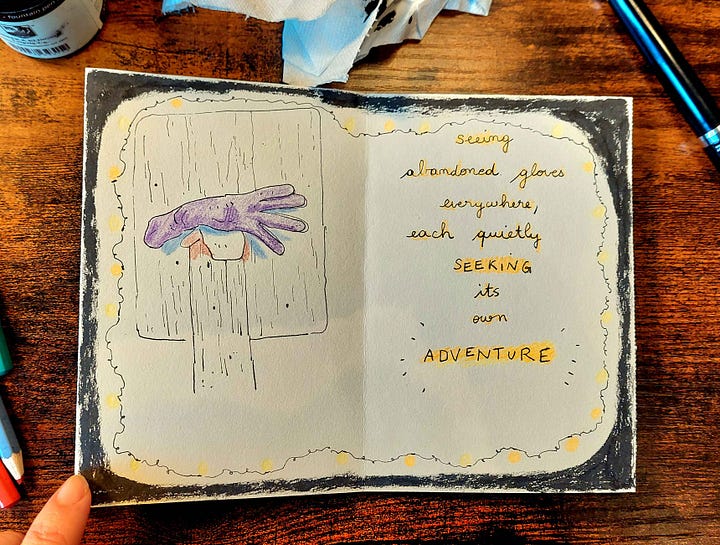 fountain pen
seeing
abandoned gloves
everywhere,
each quietly
SEEKING
its
own
ADVENTURE